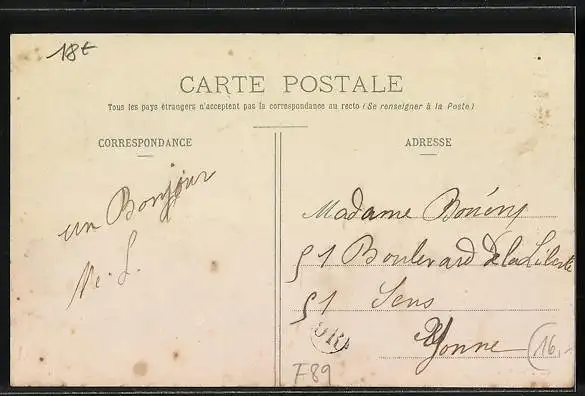 18t
CARTE POSTALE
Tous les pays étrangers n'acceptent pas la correspondance au recto (Se renseigner à la Poste)
CORRESPONDANCE
un Bonjour
ADRESSE
Madame
51 Boulevard de la Liberté
51 Sens
Yonne
16.-
F89